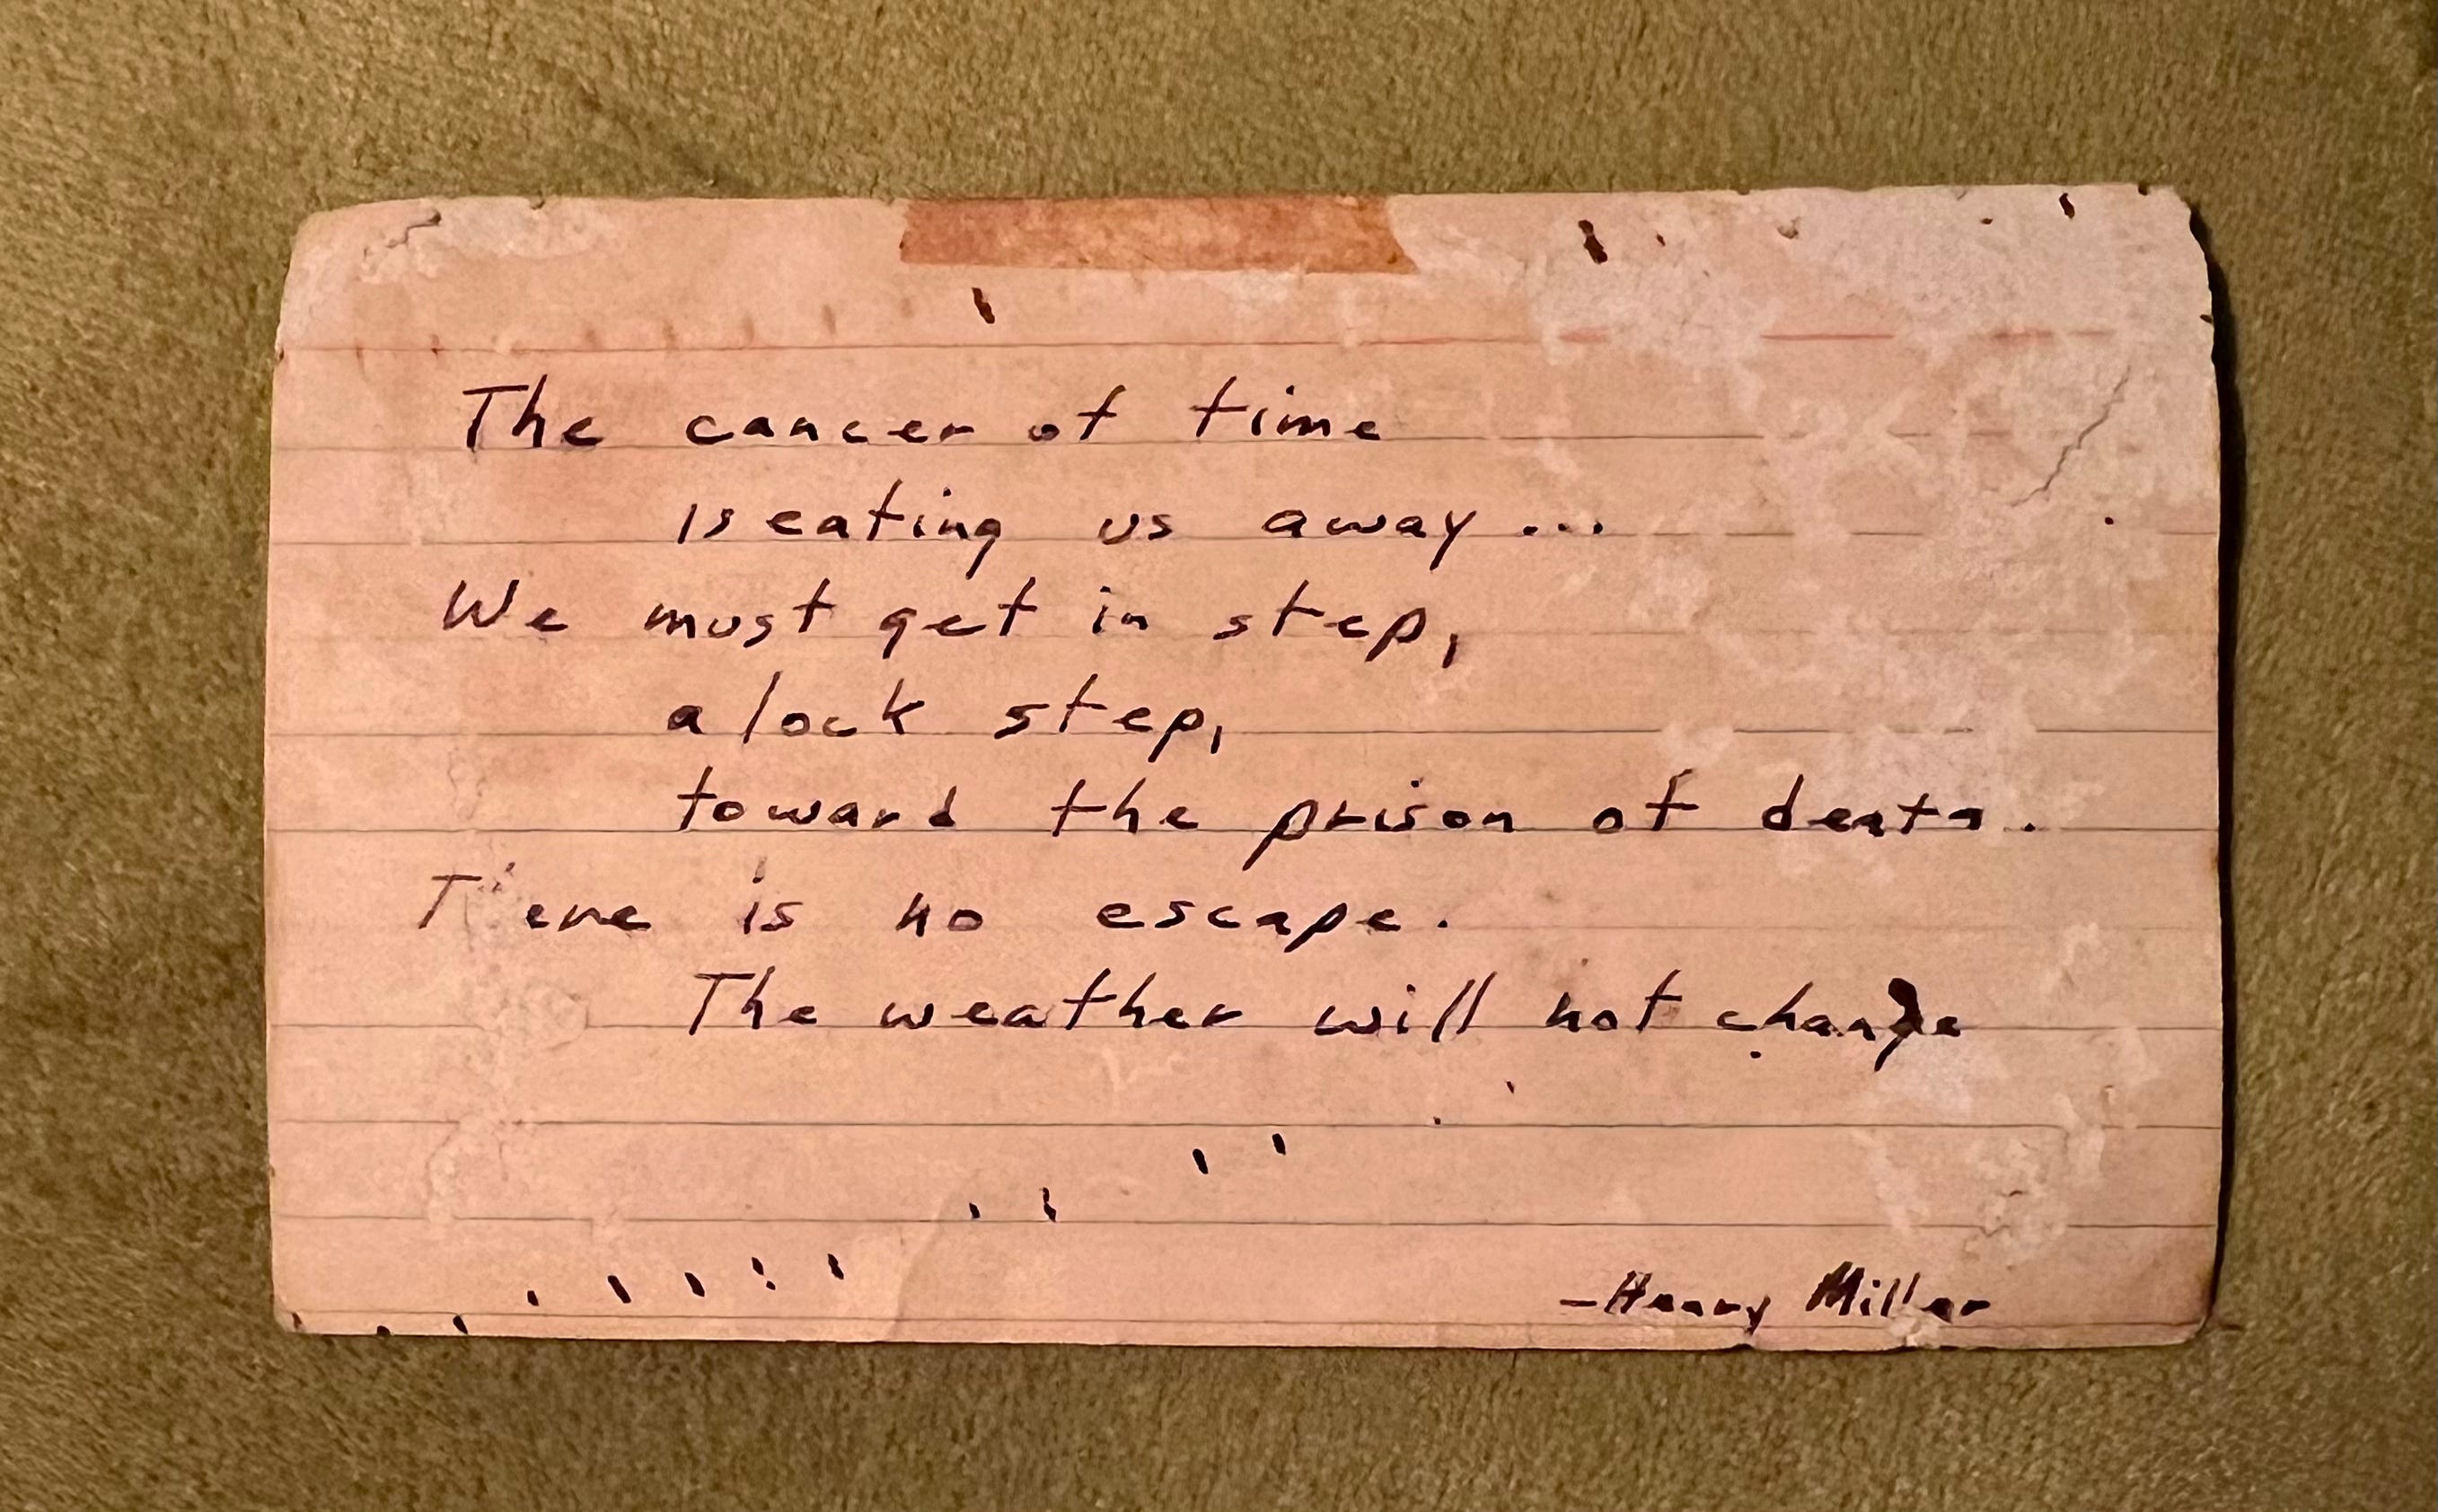 The cancer of time
is eating us away...
We must get in step,
a lock step,
toward the prison of death.
There is no escape.
The weather will not change
-Henry Miller